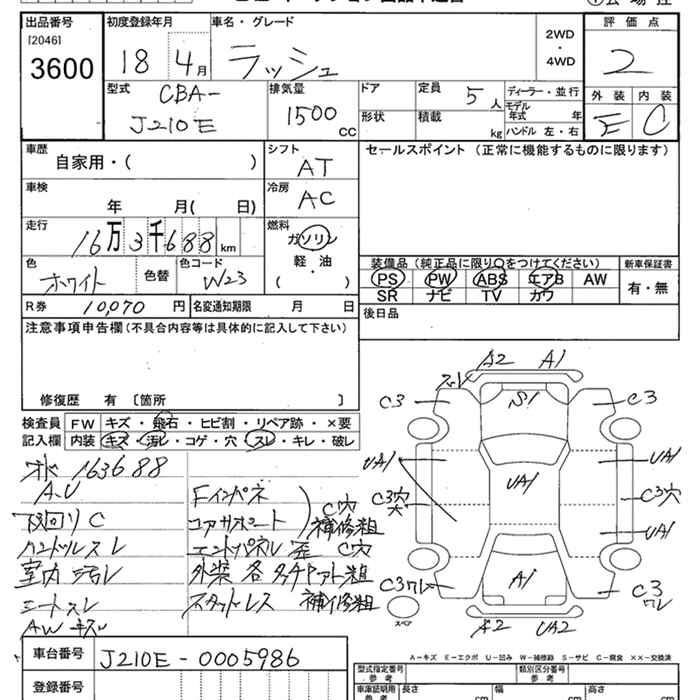 出品番号 初度登録年月 車名・グレード 評価点
[2046]
3600
18 4月 ラッシュ 2WD・4WD 2
型式 排気量 ドア 定員 5人 ディーラー・並行 外装 内装
CBA-
J210E 1500 CC 形状 積載 kg モデル年式 年 ハンドル 左・右 E C
車歴 シフト セールスポイント (正常に機能するものに限ります)
自家用・( ) AT
車検 冷房
年 月( 日) AC
走行 燃料
16万3千688km ガソリン
軽・油
( )
色 色替 色コード
ホワイト W23
装備品(純正品に限り○をつけてください) 新車保証書
PS PW ABS エアB AW 有・無
SR ナビ TV カワ
R券 10,070円 名変通知期限 月 日 後日品
注意事項申告欄(不具合内容等は具体的に記入して下さい)
修復歴 有 〔箇所 〕
検査員 FW キズ・飛石・ヒビ割・リペア跡・×要
記入欄 内装 キズ・汚レ・コゲ・穴・スレ・キレ・破レ
163688
A.U Fインパネ
下回リC コアサポート C穴 補修粗
ハンドルスレ エンドパネル 歪 C穴
室内汚レ 外装各タッチアット粗
シートスレ スタッドレス 補修粗
AWキズ
A2 A1
C3 S1 C3
UA1 UA1 UA1
C3穴 C3穴
UA1
C3ワレ A1 C3ワレ
スペア A2 UA2
A-キズ E-エクボ U-凹み W-補修跡 S-サビ C-腐食 XX-交換済
車台番号 J210E-0005986
登録番号
型式指定番号 参考 類別区分番号 参考
車庫証明用 参考 長さ cm 幅 cm 高さ cm